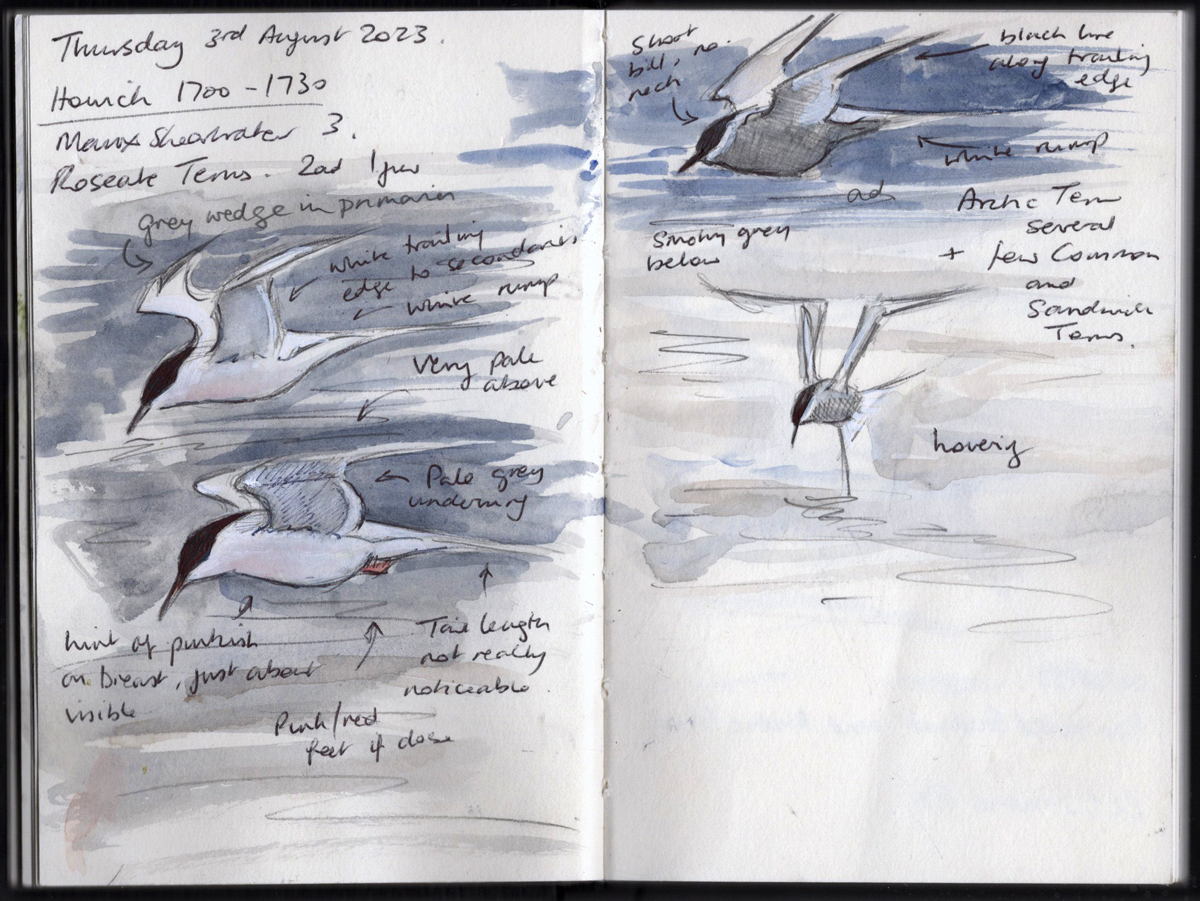 Thursday 3rd August 2023.
Howick 1700 - 1730
Manx Shearwater 3.
Roseate Terns. 2ad 1juv
Grey wedge in primaries
white trailing
edge to secondaries
white rump
Very pale
above
Pale grey
underwing
hint of pinkish
on breast, just about
visible
Tail length
not really
noticeable.
Pink/red
feet if close
Short
bill, no
neck
black line
along trailing
edge
white rump
ad
Smoky grey
below
Arctic Tern
several
+ few Common
and
Sandwich
Terns.
hovering